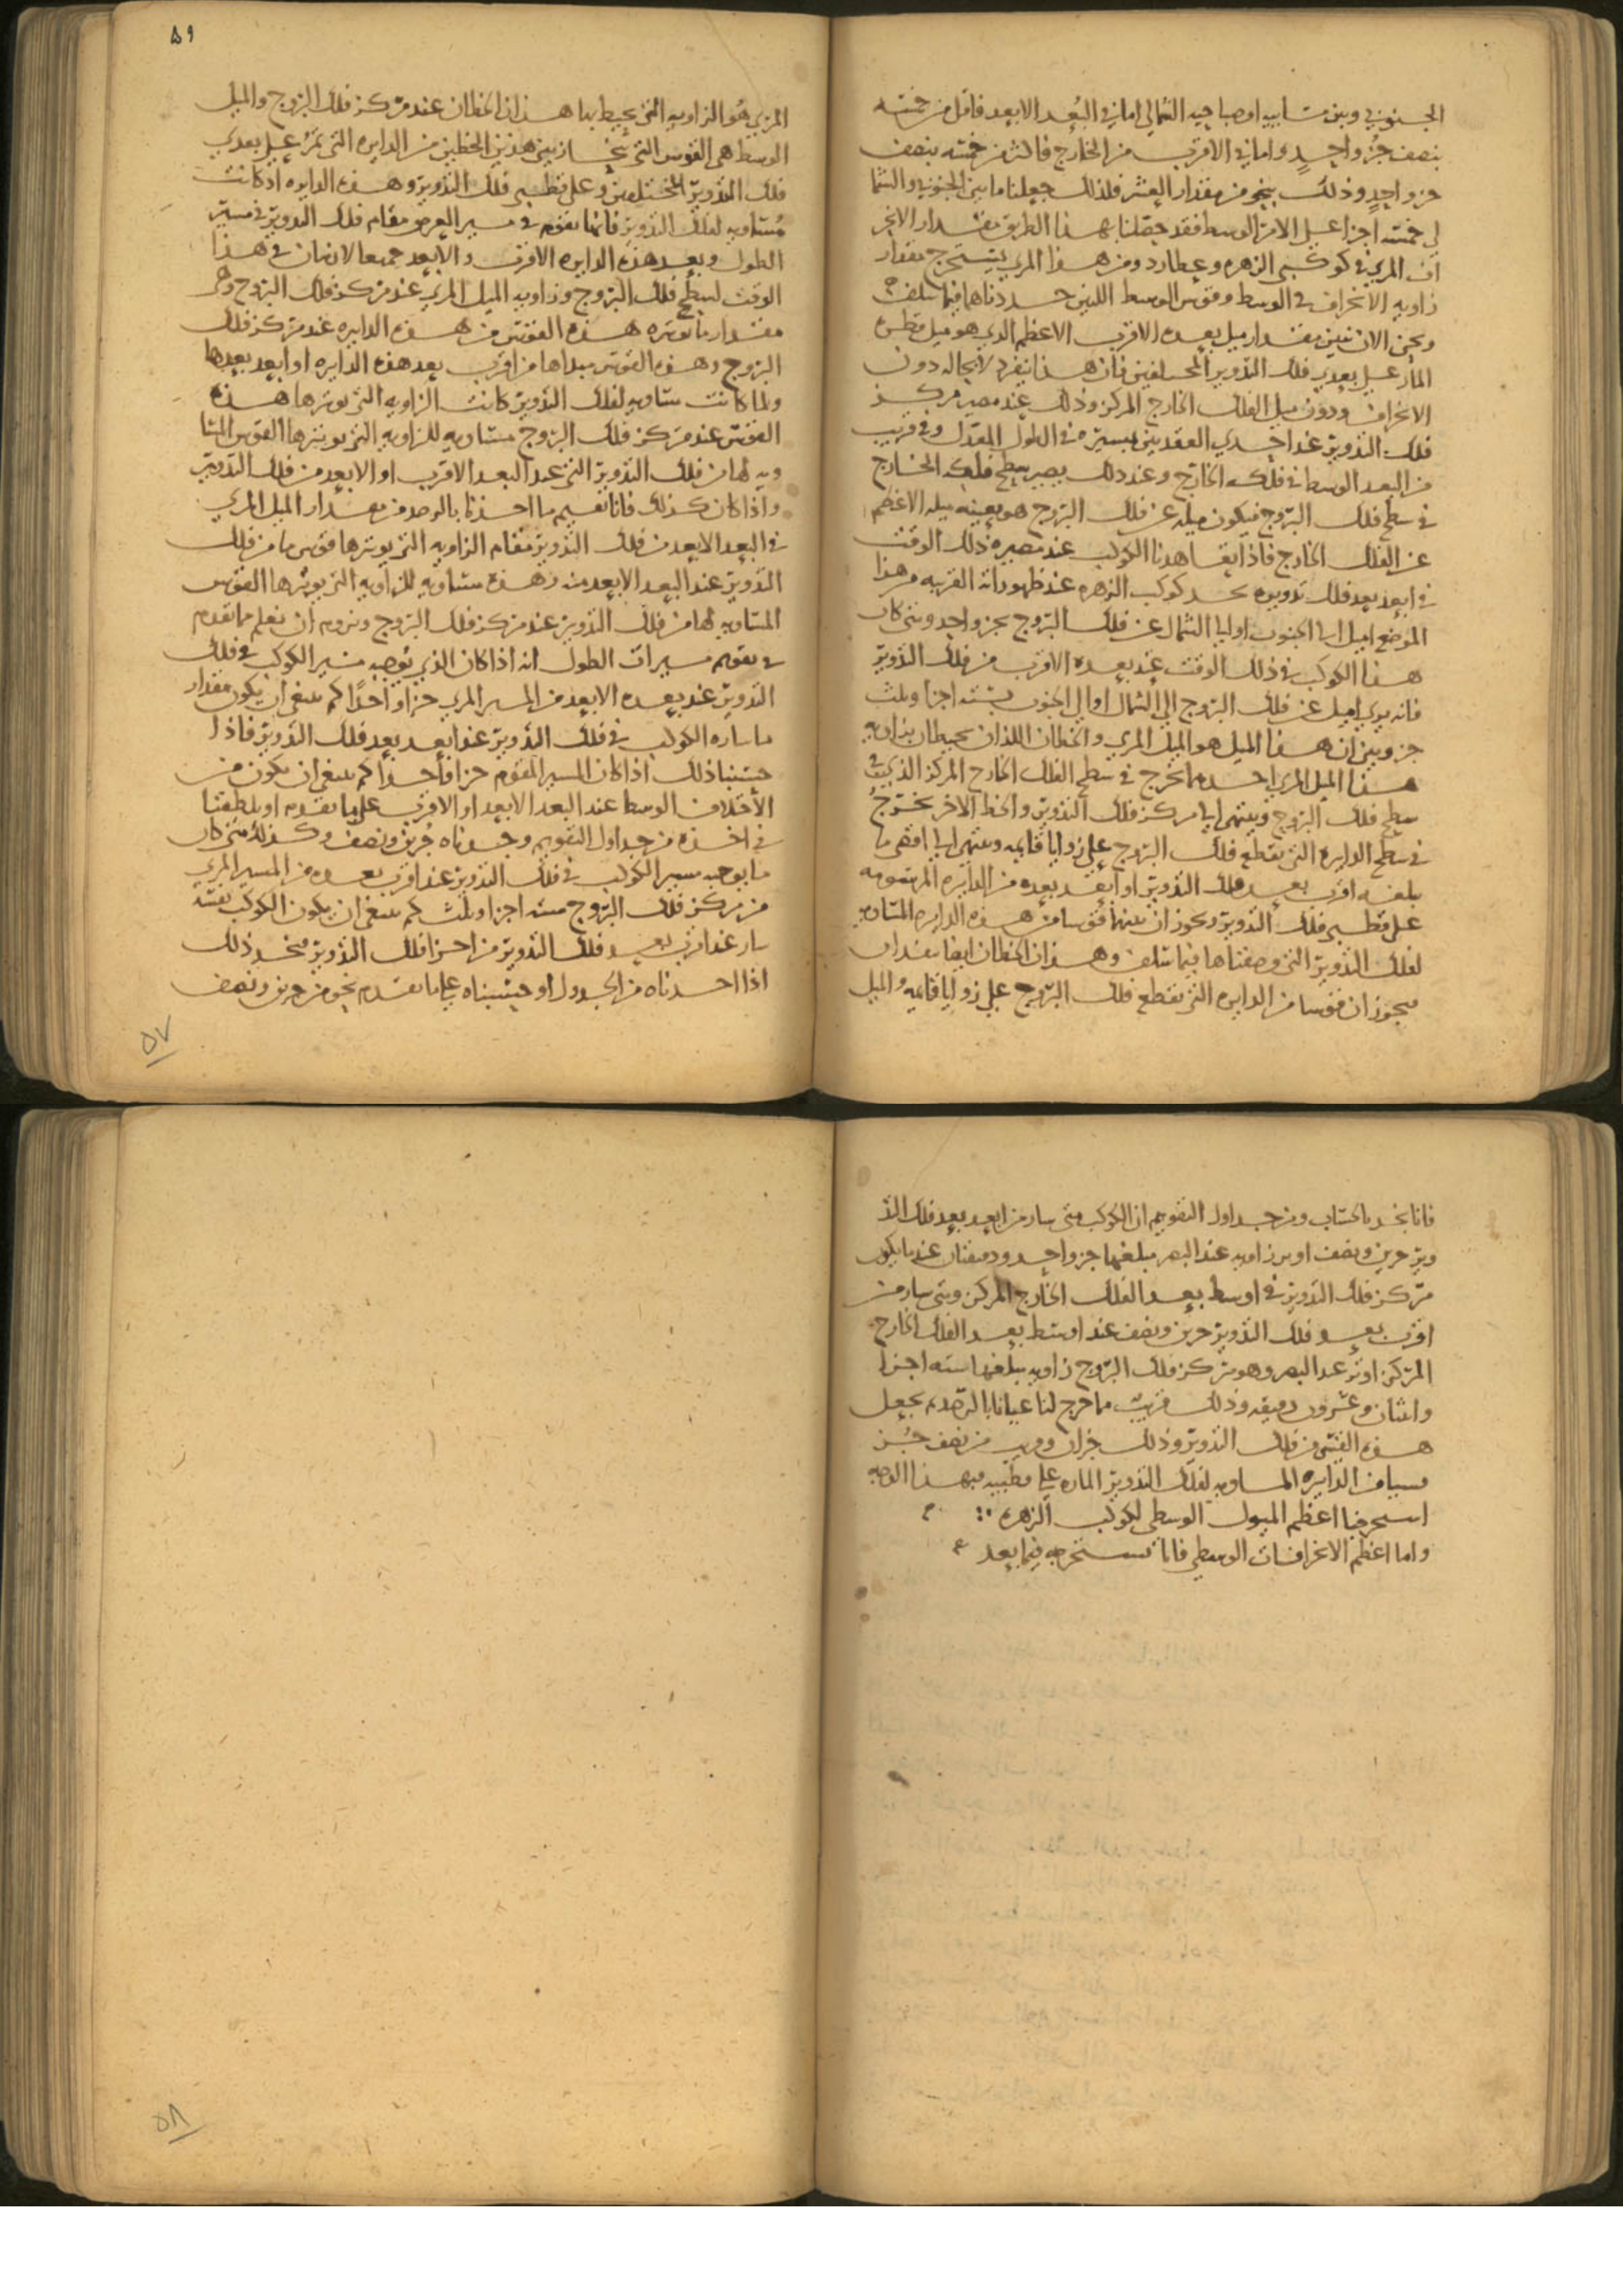 الجنوبي وبين مسايبه او صباحيه الشمالي اما في البعد الابعد فاقل من خمسه
بنصف جزو واحد واما في الاقرب من الخارج فاكثر من خمسه بنصف
جزو واحد وذلك بنحو من مقدار العشر فلذلك جعلنا ما بين الجنوبي والشما
لي خمسه اجزا علي الامر الوسط فقد حصلنا بهذا الطريق مقدار الانحر
اف المري في كوكبي الزهره وعطارد ومن هذا المري يستخرج مقدار
زاويه الانحراف في الوسط وقوس الوسط اللتين حددناهما فيما سلف
ونحن الان نبين مقدار ميل بعده الاقرب الاعظم الذي هو ميل قطره
المار علي بعدي فلك التدوير المختلفين فان هذا ينفرد لا محاله دون
الانحراف ودون ميل الفلك الخارج المركز وذلك عند مصير مركز
فلك التدوير عند احدي العقدتين بمسيره في الطول المعدل وفي قريب
من البعد الوسط في فلكه الخارج وعند ذلك يصير سطح فلكه الخارج
في سطح فلك البروج فيكون ميله عن فلك البروج هو بعينه ميله الاعظم
عن الفلك الخارج فاذا شاهدنا الكوكب عند مصيره ذلك الوقت
في ابعد بعد فلك تدويره نجد كوكب الزهره عند ظهوراته القريبه من هذا
الموضع اميل الي الجنوب او الي الشمال عن فلك البروج بجزو واحد ومتي كان
هذا الكوكب في ذلك الوقت عند بعده الاقرب من فلك التدوير
فانه يري اميل عن فلك البروج الي الشمال او الي الجنوب بسته اجزا وثلث
جزو وبين ان هذا الميل هو الميل المري والخطان اللذان يحيطان بزاويه
هذا الميل المري احدهما يخرج في سطح الفلك الخارج المركز الذي في
سطح فلك البروج وينتهي الي مركز فلك التدوير والخط الاخر يخرج
في سطح الدايره التي تقطع فلك البروج علي زوايا قايمه وينتهي الي اقصي ما
بلغه اقرب بعد فلك التدوير او ابعد بعده من الدايره المرسومه
علي قطبي فلك التدوير ويحوزان بينهما قوسا من هذه الدايره المساويه
لفلك التدوير التي وصفناها فيما سلف وهذان الخطان ايضا
يحوزان قوسا من الدايره التي تقطع فلك البروج علي زوايا قايمه والميل
٥٩
المري هو الزاويه التي يحيط بها هذان الخطان عند مركز فلك البروج والميل
الوسط هي القوس التي تنحاز بين هذين الخطين من الدايره التي تمر علي بعدي
فلك التدوير المختلفين وعلي قطبي فلك التدوير وهذه الدايره اذ كانت
مساويه لفلك التدوير فانها تقوم في مسير العرض مقام فلك التدوير في مسير
الطول وبعد هذه الدايره الاقرب والابعد جميعا لازمان في هذا
الوقت لسطح فلك البروج وزاويه الميل المري عند مركز فلك البروج وهي
مقدار ما توتره هذه القوس من هذه الدايره عند مركز فلك
البروج وهذه القوس مبداها من اقرب بعد هذه الدايره او ابعد بعدها
ولما كانت مساويه لفلك التدوير كانت الزاويه التي توترها هذه
القوس عند مركز فلك البروج مساويه للزاويه التي يوترها القوس المسا
ويه لها من فلك التدوير التي عند البعد الاقرب او الابعد من فلك التدوير
واذا كان كذلك فانا نقيم ما اخذنا بالرصد من مقدار الميل المري
في البعد الابعد من فلك التدوير مقام الزاويه التي يوترها قوس ما من فلك
التدوير عند البعد الابعد منه وهذه مساويه للزاويه التي يوترها القوس
المساويه لها من فلك التدوير عند مركز فلك البروج ونروم ان نعلم مما تقدم
في تقويم مسيرات الطول انه اذا كان الذي يوجبه مسير الكوكب في فلك
التدوير عند بعده الابعد من المسير المري جزا واحدا كم ينبغي ان يكون مقدار
ما ساره الكوكب في فلك التدوير عند ابعد بعد فلك التدوير فاذا
حسبنا ذلك اذا كان المسير المقوم جزا واحدا كم ينبغي ان يكون من
الاختلاف الوسط عند البعد الابعد او الاقرب علي ما تقدم او تلطفنا
في اخذه من جداول التقويم وجدناه جزين ونصف وكذلك متي كان
ما يوجبه مسير الكوكب في فلك التدوير عند اقرب بعده من المسير المري
من مركز فلك البروج سته اجزا وثلث كم ينبغي ان يكون الكوكب نفسه
سار عند اقرب بعد فلك التدوير من اجزا فلك التدوير فنجد ذلك
اذا اخذناه من الجدول او حسبناه علي ما تقدم نحو من جزين ونصف
٥٧
فانا نجد بالحساب ومن جداول التقويم ان الكوكب متي سار من ابعد بعد فلك التد
وير جزين ونصف اوتر زاويه عند البصر مبلغها جزو واحد ودقيقتان عندما يكون
مركز فلك التدوير في اوسط بعد الفلك الخارج المركز ومتي سار من
اقرب بعد فلك التدوير جزين ونصف عند اوسط بعد الفلك الخارج
المركز اوتر عند البصر وهو مركز فلك البروج زاويه مبلغها سته اجزا
واثنان وعشرون دقيقه وذلك قريب مما خرج لنا عيانا بالرصد فنجعل
هذه القسي من فلك التدوير وذلك جزان وقريب من نصف جزو
قسيا من الدايره المساويه لفلك التدوير الماره علي قطبيه فبهذا الوجه
استخرجنا اعظم الميول الوسطي لكوكب الزهره
واما اعظم الانحرافات الوسطي فانا نستخرجه فيما بعد
٥٨